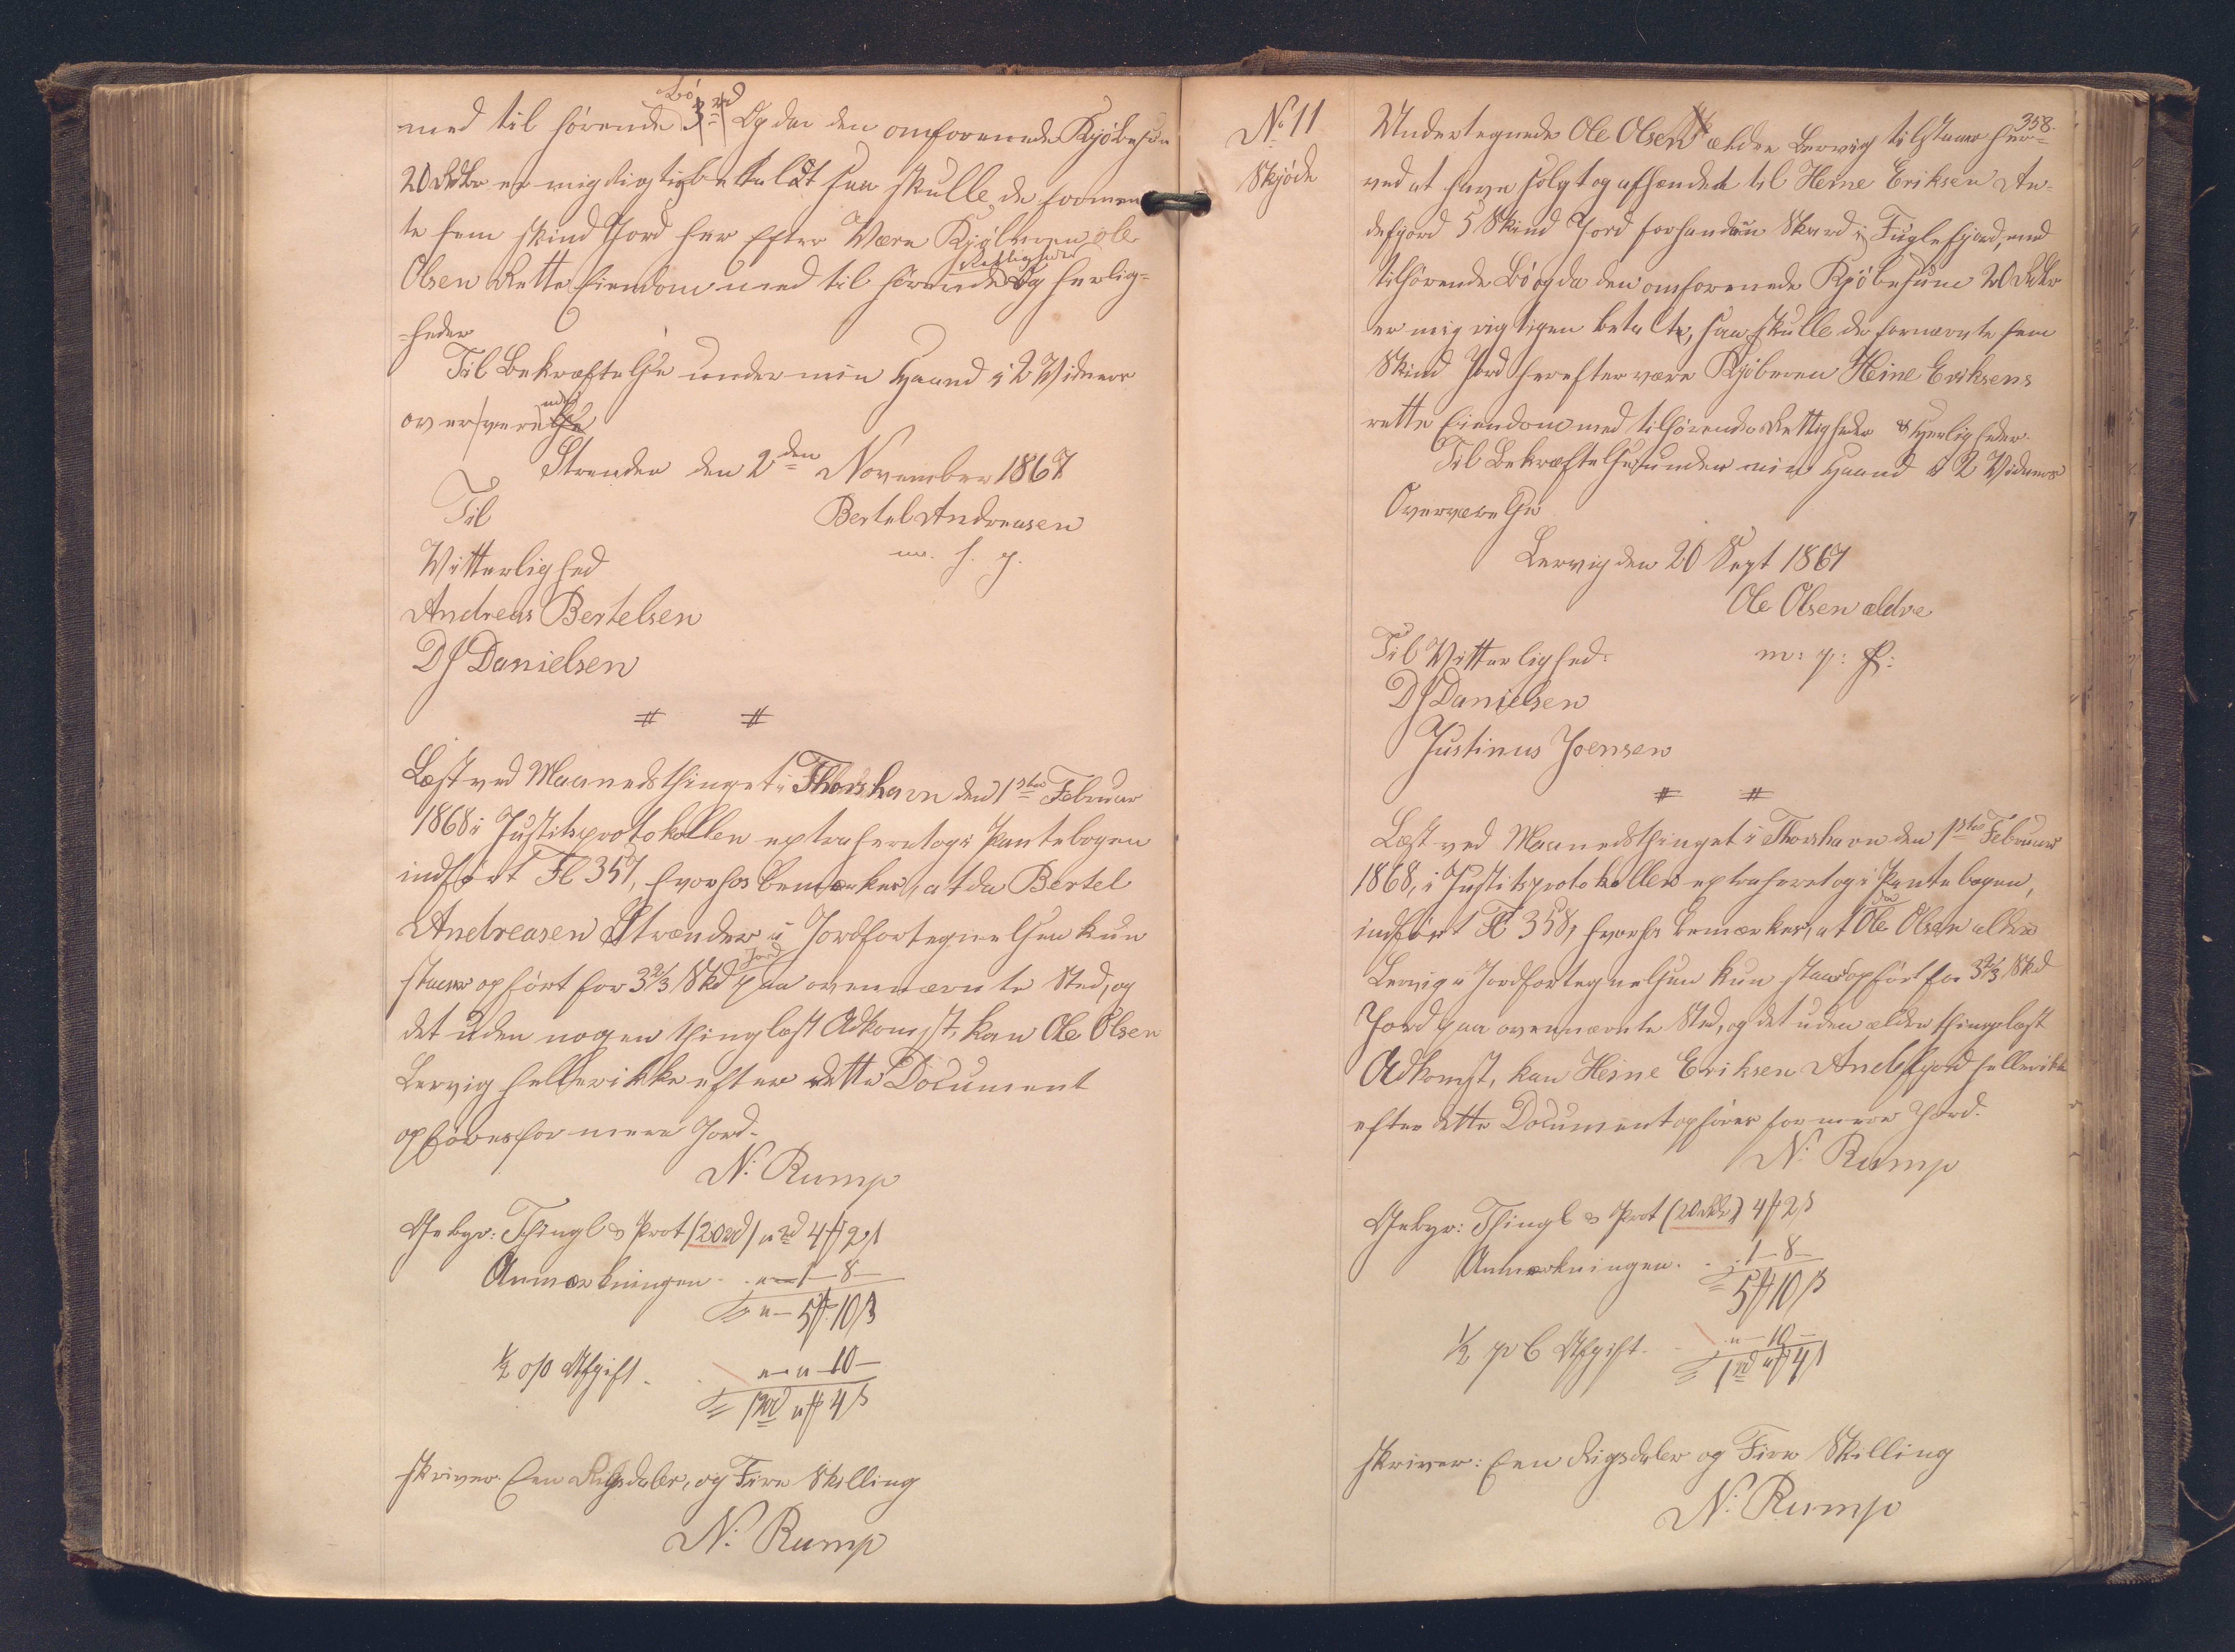 Bö
med til hörende 3 rd Og da den omforenede Kjöbesum
20 Rdlr er mig rigtig betalat saa skulle de fornæn
te fem skind Jord her Efter Være Kjöberen Ole
Rettigheder
Olsen Rette Eiendom med til hörende Og herlig=
=heder
Til Bekræftelse under min Haand i 2 Vidners
overværelse
Strender den 2den November 1867
Til Bertel Andreasen
Vitterlighed m. f. p.
Andreas Bertelsen
DJ Danielsen
# #
Læst ved Maanedsthinget i Thorshavn den 1ste Februar
1868 i Justitsprotokollen extraheret og i Pantebogen
indfört Fl 357, hvorhos bemærkes, at da Bertel
Andreasen Strænder i Jordfortegnelsen kun
Jord
staaer opfört for 3 2/3 Skd paa ovennævnte Sted, og
det uden nogen thinglæst Adkomst, kan Ole Olsen
Lervig heller ikke efter dette Document
opföres for mere Jord.
N: Rump
Gebyr: Thingl & Prot (20 rd) " rd 4 ß 2 s
Anmærkningen - . " - 1 - 8 -
" - 5 ß 10 s
1/2 o/o Afgift . . " - " - 10 -
1 rd " ß 4 s
skriver: Een Rigsdaler, og Fire Skilling
N: Rump
358.
No 11
Skjöde
Undertegnede Ole Olsen ældre Lervig tilstaaer her=
ved at have solgt og afhændet til Heine Eriksen An=
defjord 5 Skind Jord forhanden Skard i Fuglefjord, med
tilhörende Bö og da den omforenede Kjöbesum 20 Rdlr
er mig rigtigen betalte, saa skulle de fornævnte fem
Skind Jord herefter være Kjöberen Heine Eriksens
rette Eiendom med tilhörende Rettigheder & Herligheder.
Til Bekræftelse under min Haand i 2 Vidners
Overværelse
Lervig den 20 Sept 1867
Ole Olsen ældre
Til Vitterlighed: m: p: f:
DJ Danielsen
Justinus Joensen
# #
Læst ved Maanedsthinget i Thorshavn den 1ste Februar
1868, i Justitsprotokollen extraheret og i Pantebogen,
da
indfört Fl 358, hvorhos bemærkes, at Ole Olsen ældre
Lervig i Jordfortegnelsen kun staaer opfört for 3 2/3 Skd
Jord paa ovennævnte Sted, og det uden ældre thinglæst
Adkomst, kan Heine Eriksen Andefjord heller ikke
efter dette Document opföres for mere Jord.
N: Rump
Gebyr: Thingl & Prot (20 rdlr) 4 ß 2 s
Anmærkningen . . 1 - 8 -
5 ß 10 s
1/2 p C Afgift . . " - 10 -
1 rd " ß 4 s
skriver: Een Rigsdaler og Fire Skilling
N: Rump